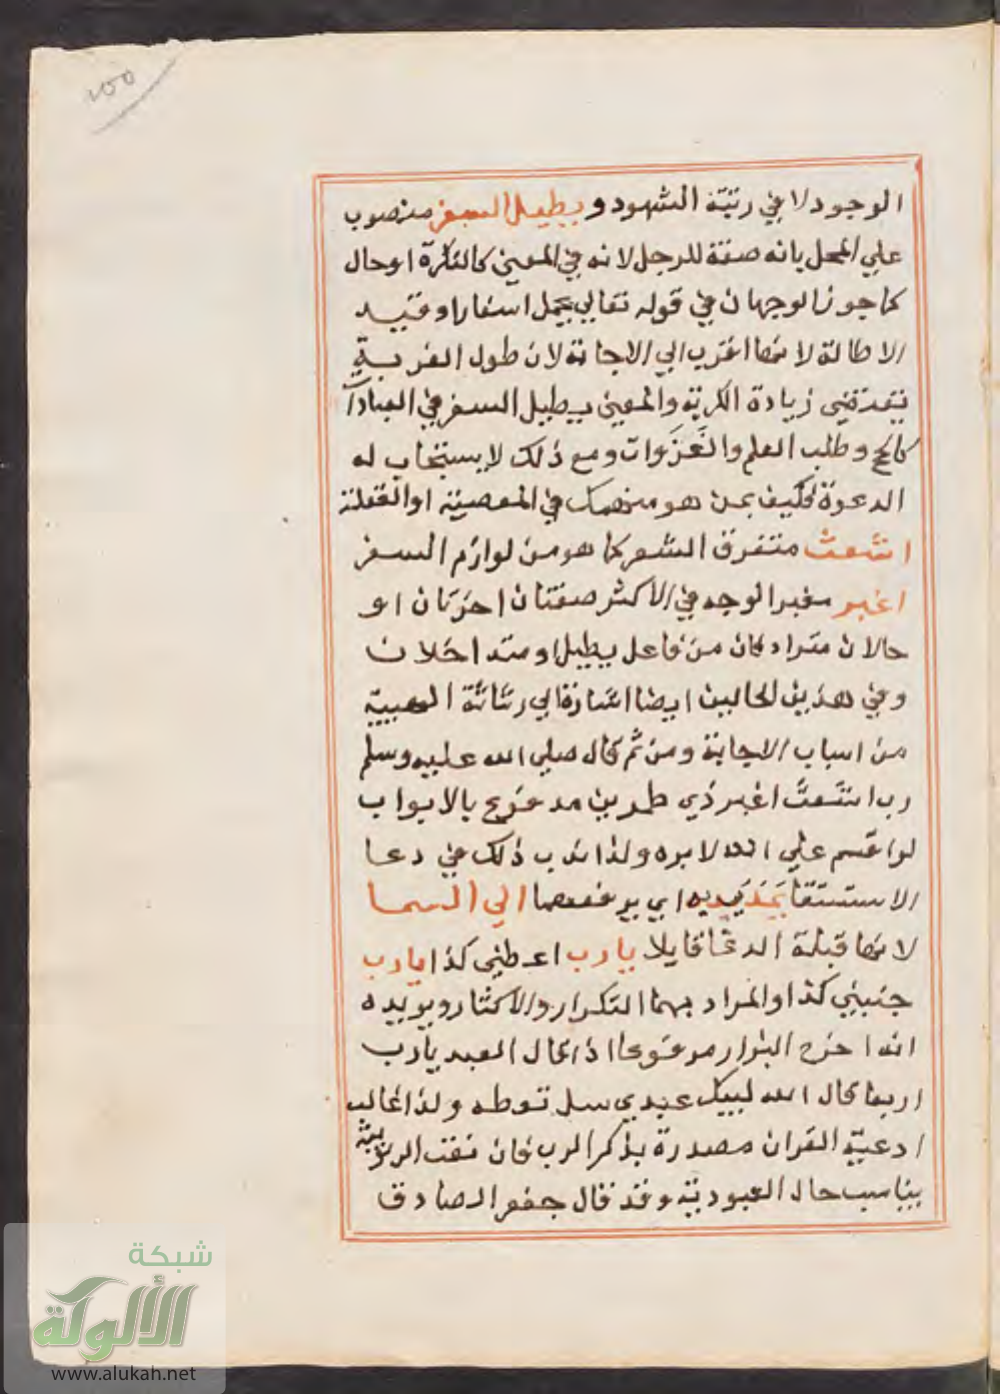 ١٥٥
الوجود لا في رتبة الشهود و يطيل السفر منصوب
علي المحل بانه صفة للرجل لانه في المعني كالنكرة او حال
كما جوز الوجهان في قوله تعالي يحمل اسفارا وقيد
الاطالة لانها اقرب الي الاجابة لان طول الغربة
يقتضي زيادة الكربة والمعني يطيل السفر في العبادات
كالحج وطلب العلم والغَزَوات ومع ذلك لا يستجاب له
الدعوة فكيف بمن هو منهمك في المعصية او الغفلة
اشعث متفرق الشعر كما هو من لوازم السفر
اغبر مغبر الوجه في الاكثر صفتان اخريان او
حالان مترادفان من فاعل يطيل او متداخلان
وفي هذين الحالين ايضا اشارة الي رثاثة الهيئة
من اسباب الاجابة ومن ثم قال صلي الله عليه وسلم
رب اشعث اغبر ذي طمرين مدفوع بالابواب
لو اقسم علي الله لابره ولذا ندب ذلك في دعا
الاستسقا يَمُدّ يديه اي يرفعهما الي السما
لانها قبلة الدعا قايلا يا رب اعطني كذا يا رب
جنبني كذا والمراد بهما التكرار والاكثار ويويده
انه اخرج البزار مرفوعا اذا قال العبد يا رب
اربعا قال الله لبيك عبدي سل توطه ولذا غالب
ادعية القران مصدرة بذكر الرب فان نعت الربوبية
يناسب حال العبودية وقد قال جعفر الصادق
شبكة
الألوكة
www.alukah.net